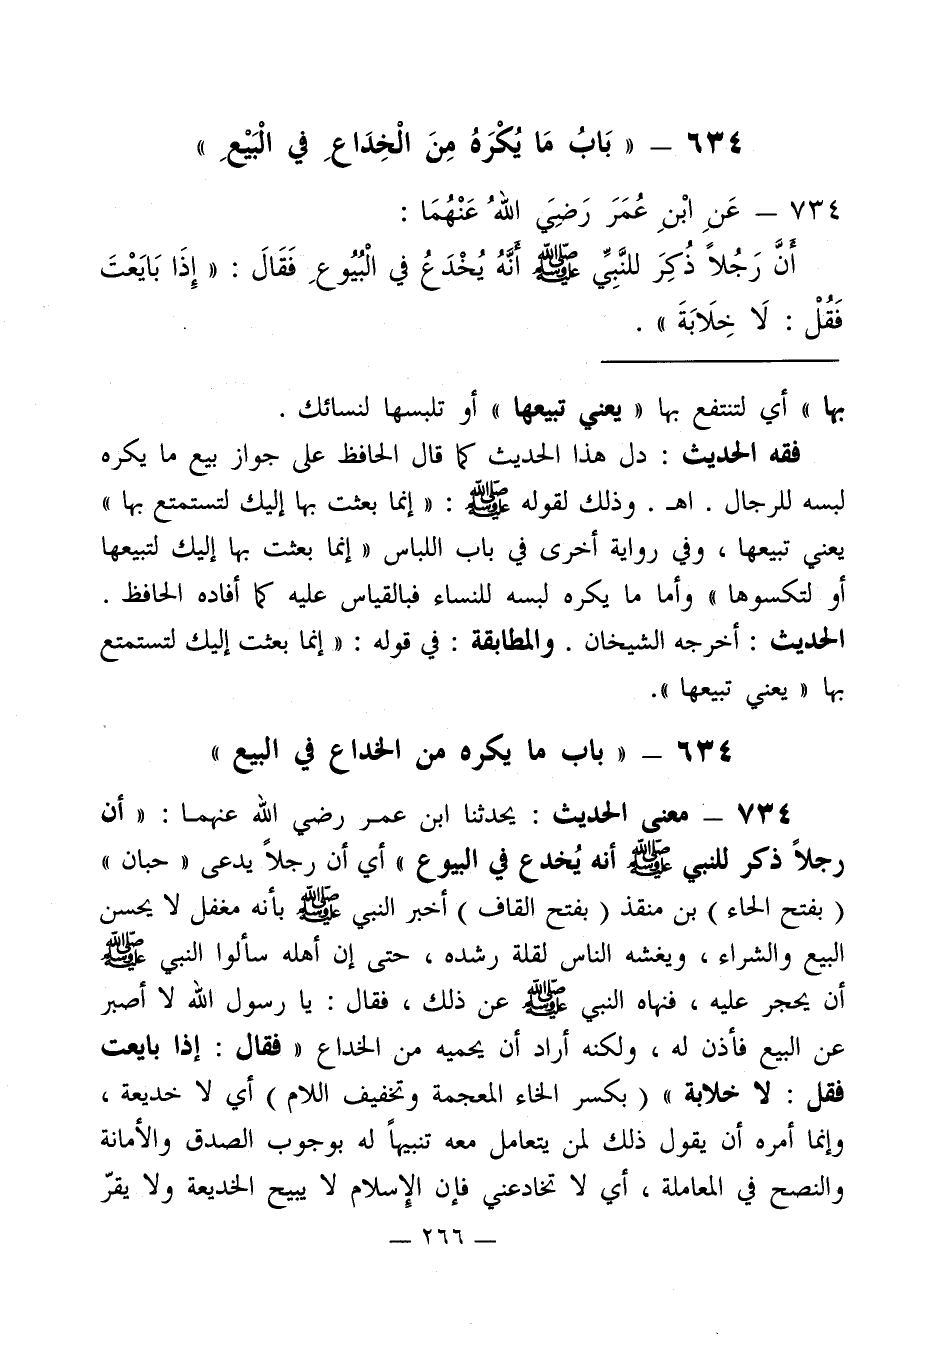 ٦٣٤ – « بَابُ مَا يُكْرَهُ مِنَ الْخِدَاعِ في الْبَيْعِ »
٧٣٤ – عَنِ ابْنِ عُمَرَ رَضِيَ اللهُ عَنْهُمَا :
أَنَّ رَجُلاً ذُكِرَ للنَّبِيِّ ﷺ أَنَّهُ يُخْدَعُ في الْبُيُوعِ فَقَالَ : « إِذَا بَايَعْتَ
فَقُلْ : لَا خِلَابَةَ » .
بها » أي لتنتفع بها « يعني تبيعها » أو تلبسها لنسائك .
فقه الحديث : دل هذا الحديث كما قال الحافظ على جواز بيع ما يكره
لبسه للرجال . اهـ . وذلك لقوله ﷺ : « إنما بعثت بها إليك لتستمتع بها »
يعني تبيعها ، وفي رواية أخرى في باب اللباس « إنما بعثت بها إليك لتبيعها
أو لتكسوها » وأما ما يكره لبسه للنساء فبالقياس عليه كما أفاده الحافظ .
الحديث : أخرجه الشيخان . والمطابقة : في قوله : « إنما بعثت إليك لتستمتع
بها « يعني تبيعها ».
٦٣٤ – « باب ما يكره من الخداع في البيع »
٧٣٤ – معنى الحديث : يحدثنا ابن عمر رضي الله عنهما : « أن
رجلاً ذكر للنبي ﷺ أنه يُخدع في البيوع » أي أن رجلاً يدعى « حبان »
( بفتح الحاء ) بن منقذ ( بفتح القاف ) أخبر النبي ﷺ بأنه مغفل لا يحسن
البيع والشراء ، ويغشه الناس لقلة رشده ، حتى إن أهله سألوا النبي ﷺ
أن يحجر عليه ، فنهاه النبي ﷺ عن ذلك ، فقال : يا رسول الله لا أصبر
عن البيع فأذن له ، ولكنه أراد أن يحميه من الخداع « فقال : إذا بايعت
فقل : لا خلابة » ( بكسر الخاء المعجمة وتخفيف اللام ) أي لا خديعة ،
وإنما أمره أن يقول ذلك لمن يتعامل معه تنبيهاً له بوجوب الصدق والأمانة
والنصح في المعاملة ، أي لا تخادعني فإن الإسلام لا يبيح الخديعة ولا يقرّ
– ٢٦٦ –